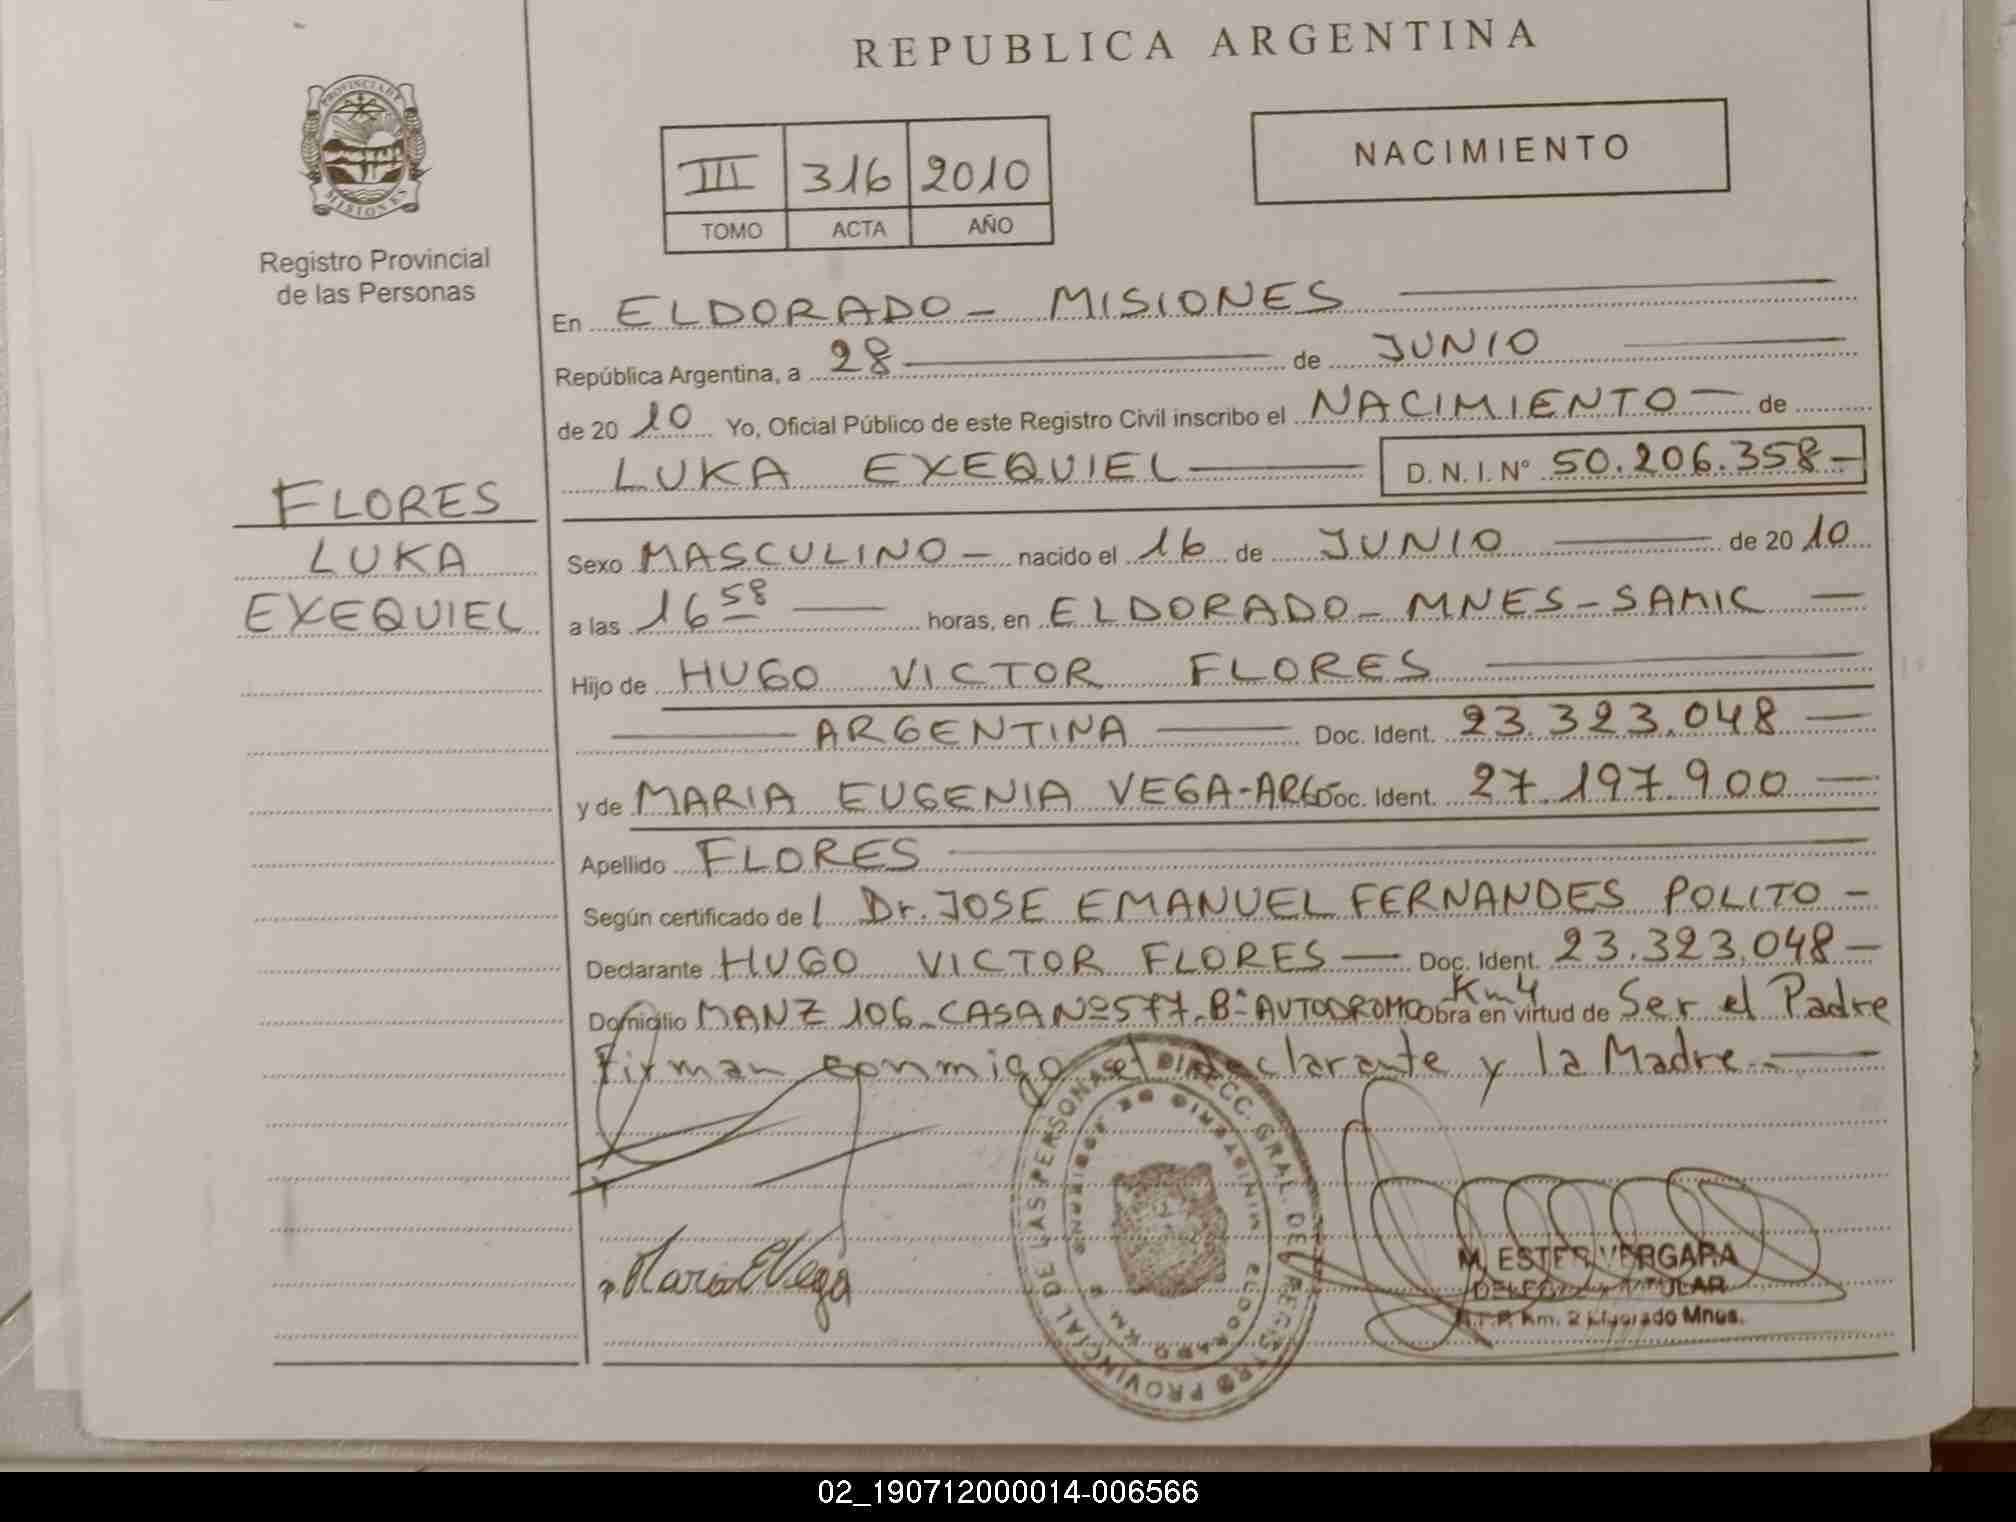 REPUBLICA ARGENTINA
PROVINCIA DE
MISIONES
Registro Provincial
de las Personas
III 316 2010
TOMO ACTA AÑO
NACIMIENTO
En ELDORADO - MISIONES
República Argentina, a 28 de JUNIO
de 20 10 Yo, Oficial Público de este Registro Civil inscribo el NACIMIENTO de
LUKA EXEQUIEL D. N. I. Nº 50.206.358-
FLORES
LUKA
EXEQUIEL
Sexo MASCULINO - nacido el 16 de JUNIO de 20 10
a las 16 58 horas, en ELDORADO - MNES - SAMIC -
Hijo de HUGO VICTOR FLORES
ARGENTINA Doc. Ident. 23.323.048 -
y de MARIA EUGENIA VEGA-ARG Doc. Ident. 27.197.900 -
Apellido FLORES
Según certificado de l Dr. JOSE EMANUEL FERNANDES POLITO -
Declarante HUGO VICTOR FLORES - Doc. Ident. 23.323.048 -
Domicilio MANZ 106 - CASA Nº 577 - Bº AUTODROMO Km 4 Obra en virtud de Ser el Padre
Firman conmigo el declarante y la Madre.-
Maria E Vega
DIRECC. GRAL. DE REGISTRO PROVINCIAL DE LAS PERSONAS
ELDORADO KM 2
M. ESTER VERGARA
TITULAR
Km. 2 Eldorado Mnes.
02_190712000014-006566